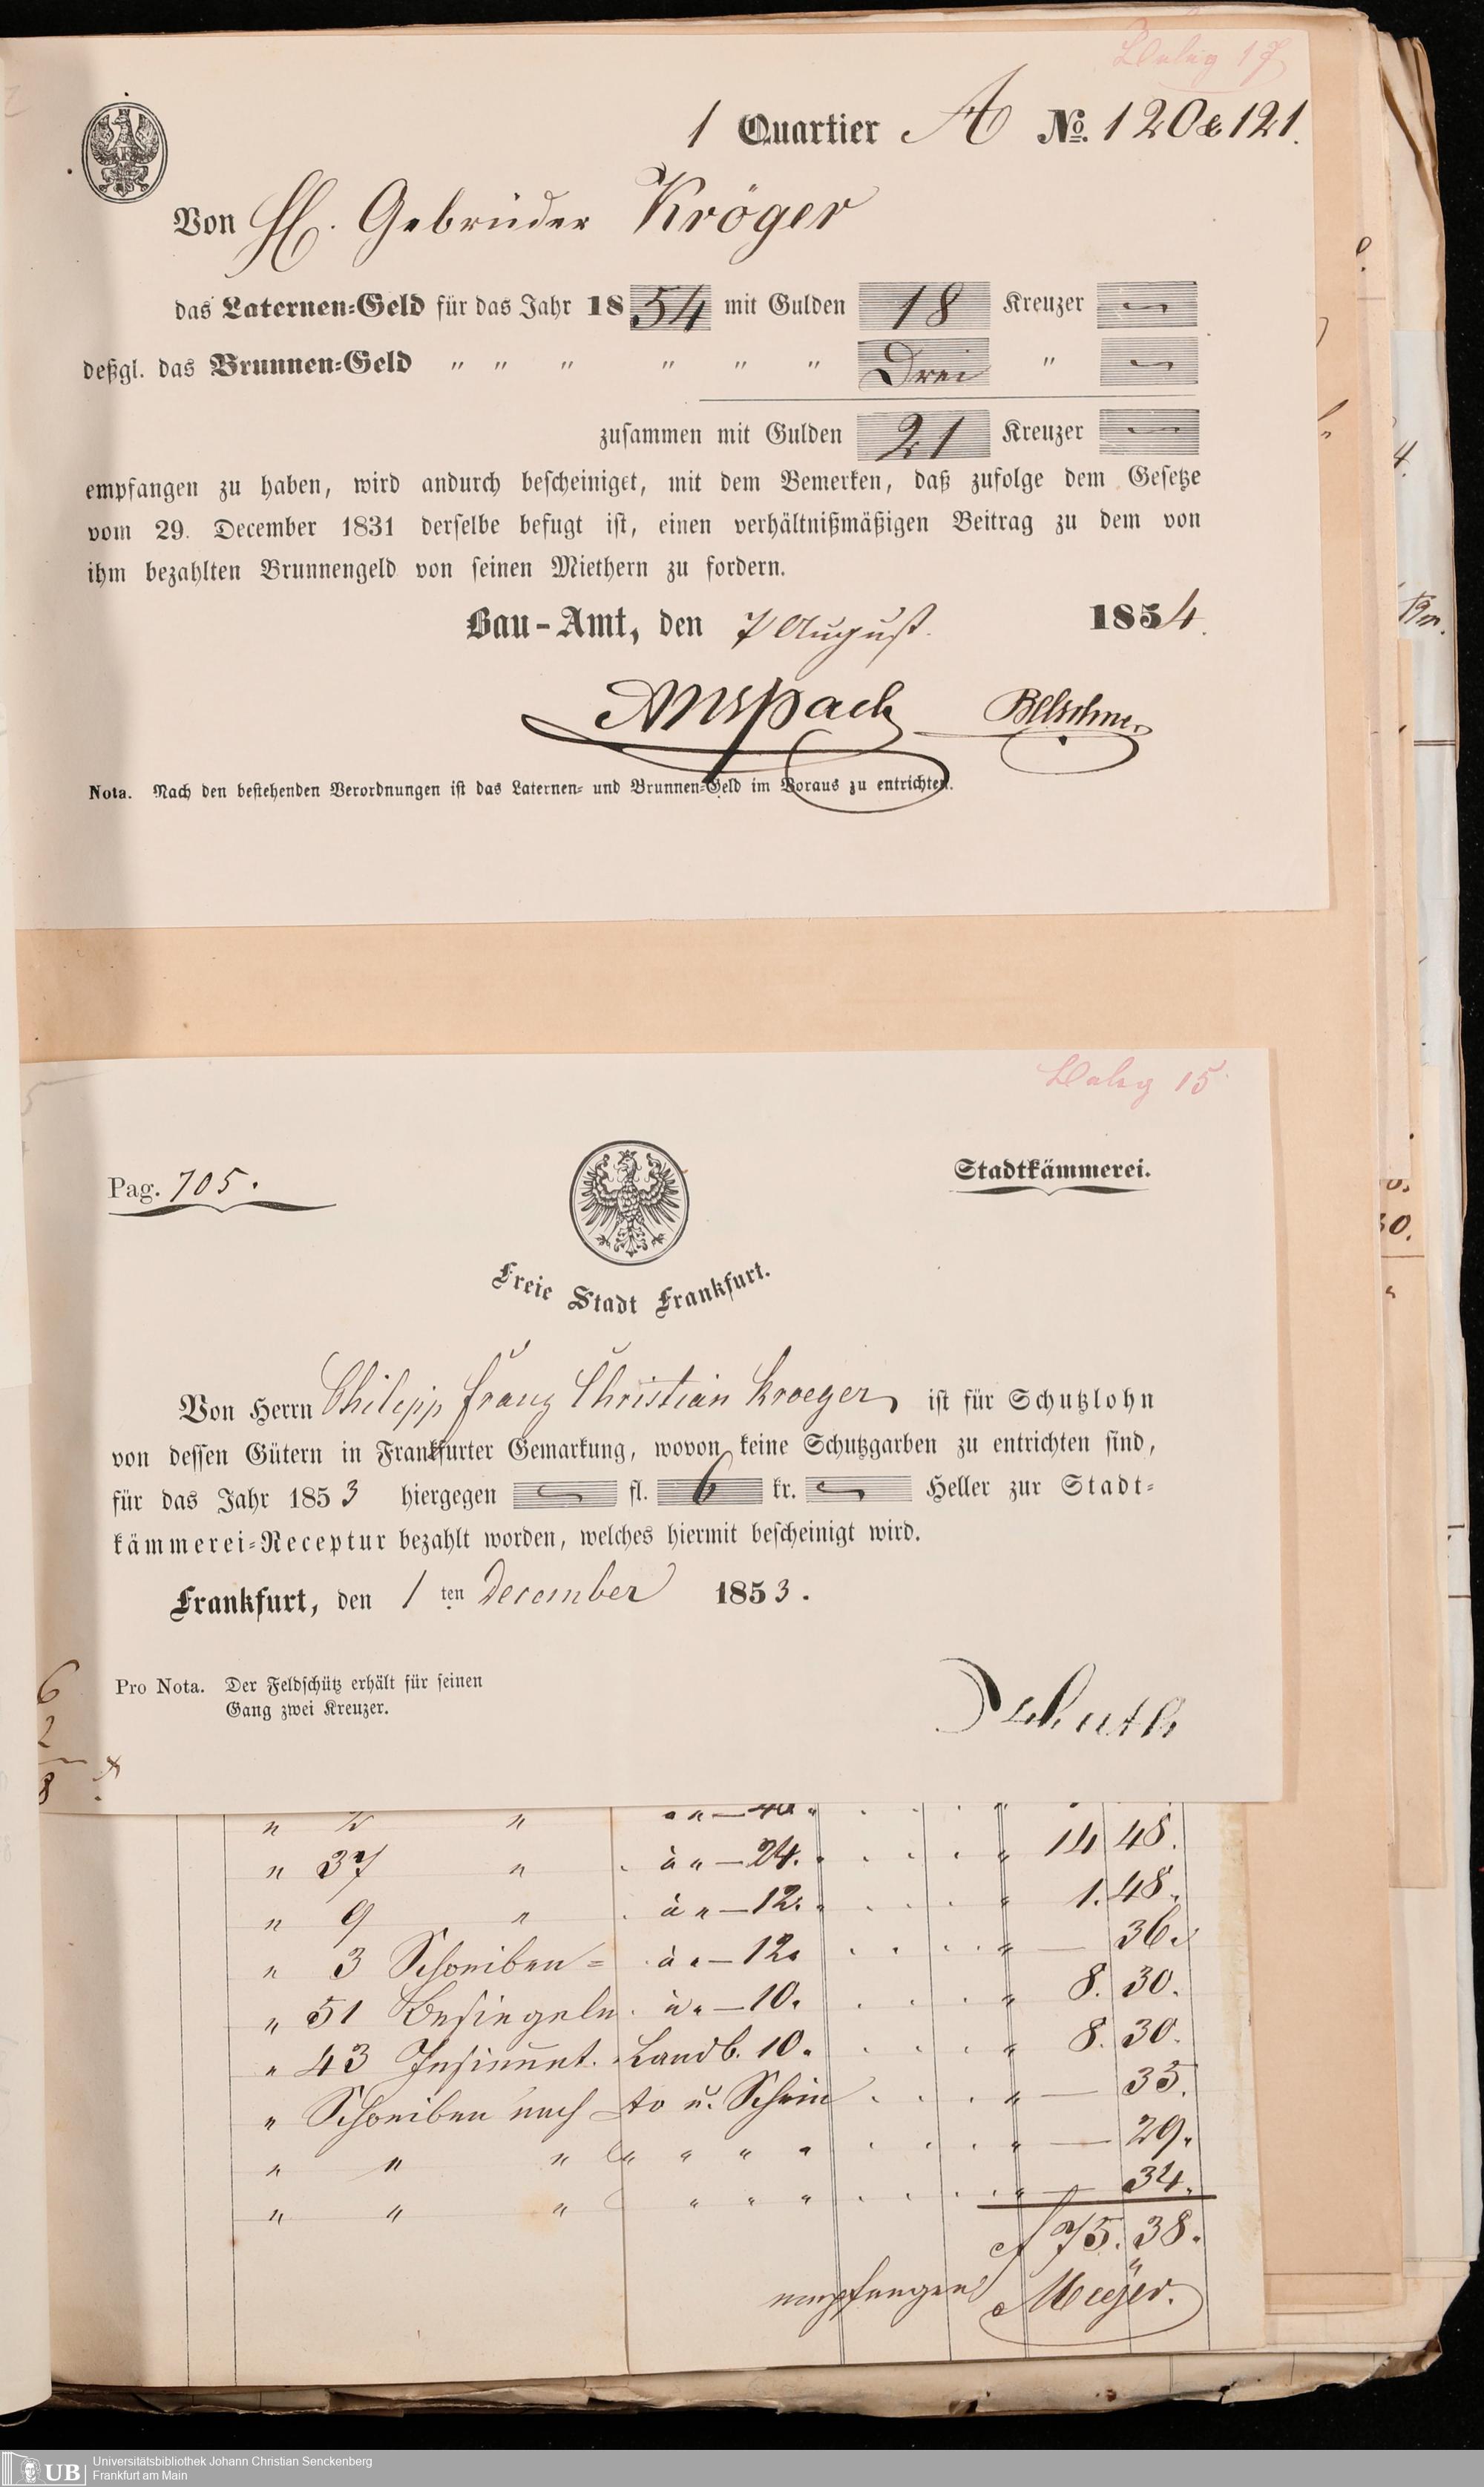 Beleg 17
1 Quartier A No. 120 & 121.
Von HH. Gebrüder Kröger
das Laternen=Geld für das Jahr 1854 mit Gulden 18 Kreuzer —
deßgl. das Brunnen=Geld " " " " " " Drei " —
zusammen mit Gulden 21 Kreuzer —
empfangen zu haben, wird andurch bescheiniget, mit dem Bemerken, daß zufolge dem Gesetze
vom 29. December 1831 derselbe befugt ist, einen verhältnißmäßigen Beitrag zu dem von
ihm bezahlten Brunnengeld von seinen Miethern zu fordern.
Bau-Amt, den 7 August. 1854.
Anspach
Nota. Nach den bestehenden Verordnungen ist das Laternen= und Brunnen=Geld im Voraus zu entrichten.
Beleg 15
Pag. 705.
Stadtkämmerei.
Freie Stadt Frankfurt.
Von Herrn Philipp Franz Christian Kroeger, ist für Schutzlohn
von dessen Gütern in Frankfurter Gemarkung, wovon keine Schutzgarben zu entrichten sind,
für das Jahr 1853 hiergegen — fl. 6 kr. — Heller zur Stadt=
kämmerei=Receptur bezahlt worden, welches hiermit bescheinigt wird.
Frankfurt, den 1 ten December 1853.
Pro Nota. Der Feldschütz erhält für seinen
Gang zwei Kreuzer.
6
2
8
" 37 " à " — 24. " 14 48.
" 9 " à " — 12. " 1. 48.
" 3 Schreiben = à " — 12. " — 36.
" 51 Besiegeln. à " — 10. " 8. 30.
" 43 Insinuat. Landb. 10. " 8. 30.
" Schreiben nach to u. Schein " — 35.
" " " " " " " — 29.
" " " " " " " — 34.
f 75. 38.
empfangen Meyer.
Universitätsbibliothek Johann Christian Senckenberg
UB Frankfurt am Main